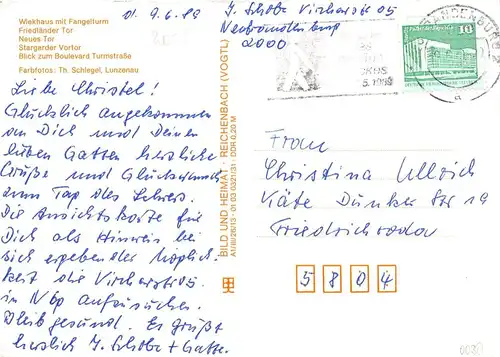 Wiekhaus mit Fangelturm
Friedländer Tor
Neues Tor
Stargarder Vortor
Blick zum Boulevard Turmstraße
Farbfotos: Th. Schlegel, Lunzenau
9.6.89
Liebe Christel!
Glücklich angekommen
an Dich und Deinen
lieben Gatten herzliche
Grüße und Glückwunsch
zum Tag des Lehrers.
Die Ansichtskarte für
Dich als Hinweis bei
sich ergebender Möglich-
keit die Virchowstr 05
in Nbg aufzusuchen.
Bleib gesund. Es grüßt
herzlich + Gatte.
BILD UND HEIMAT REICHENBACH (VOGTL)
A1/III/26/13 01 03 0321/31 DDR 0,20 M
Virchowstr 05
Neubrandenburg
2000
10
Frau
Christina Ullrich
Käte Dunker Str 19
Friedrichroda
5804